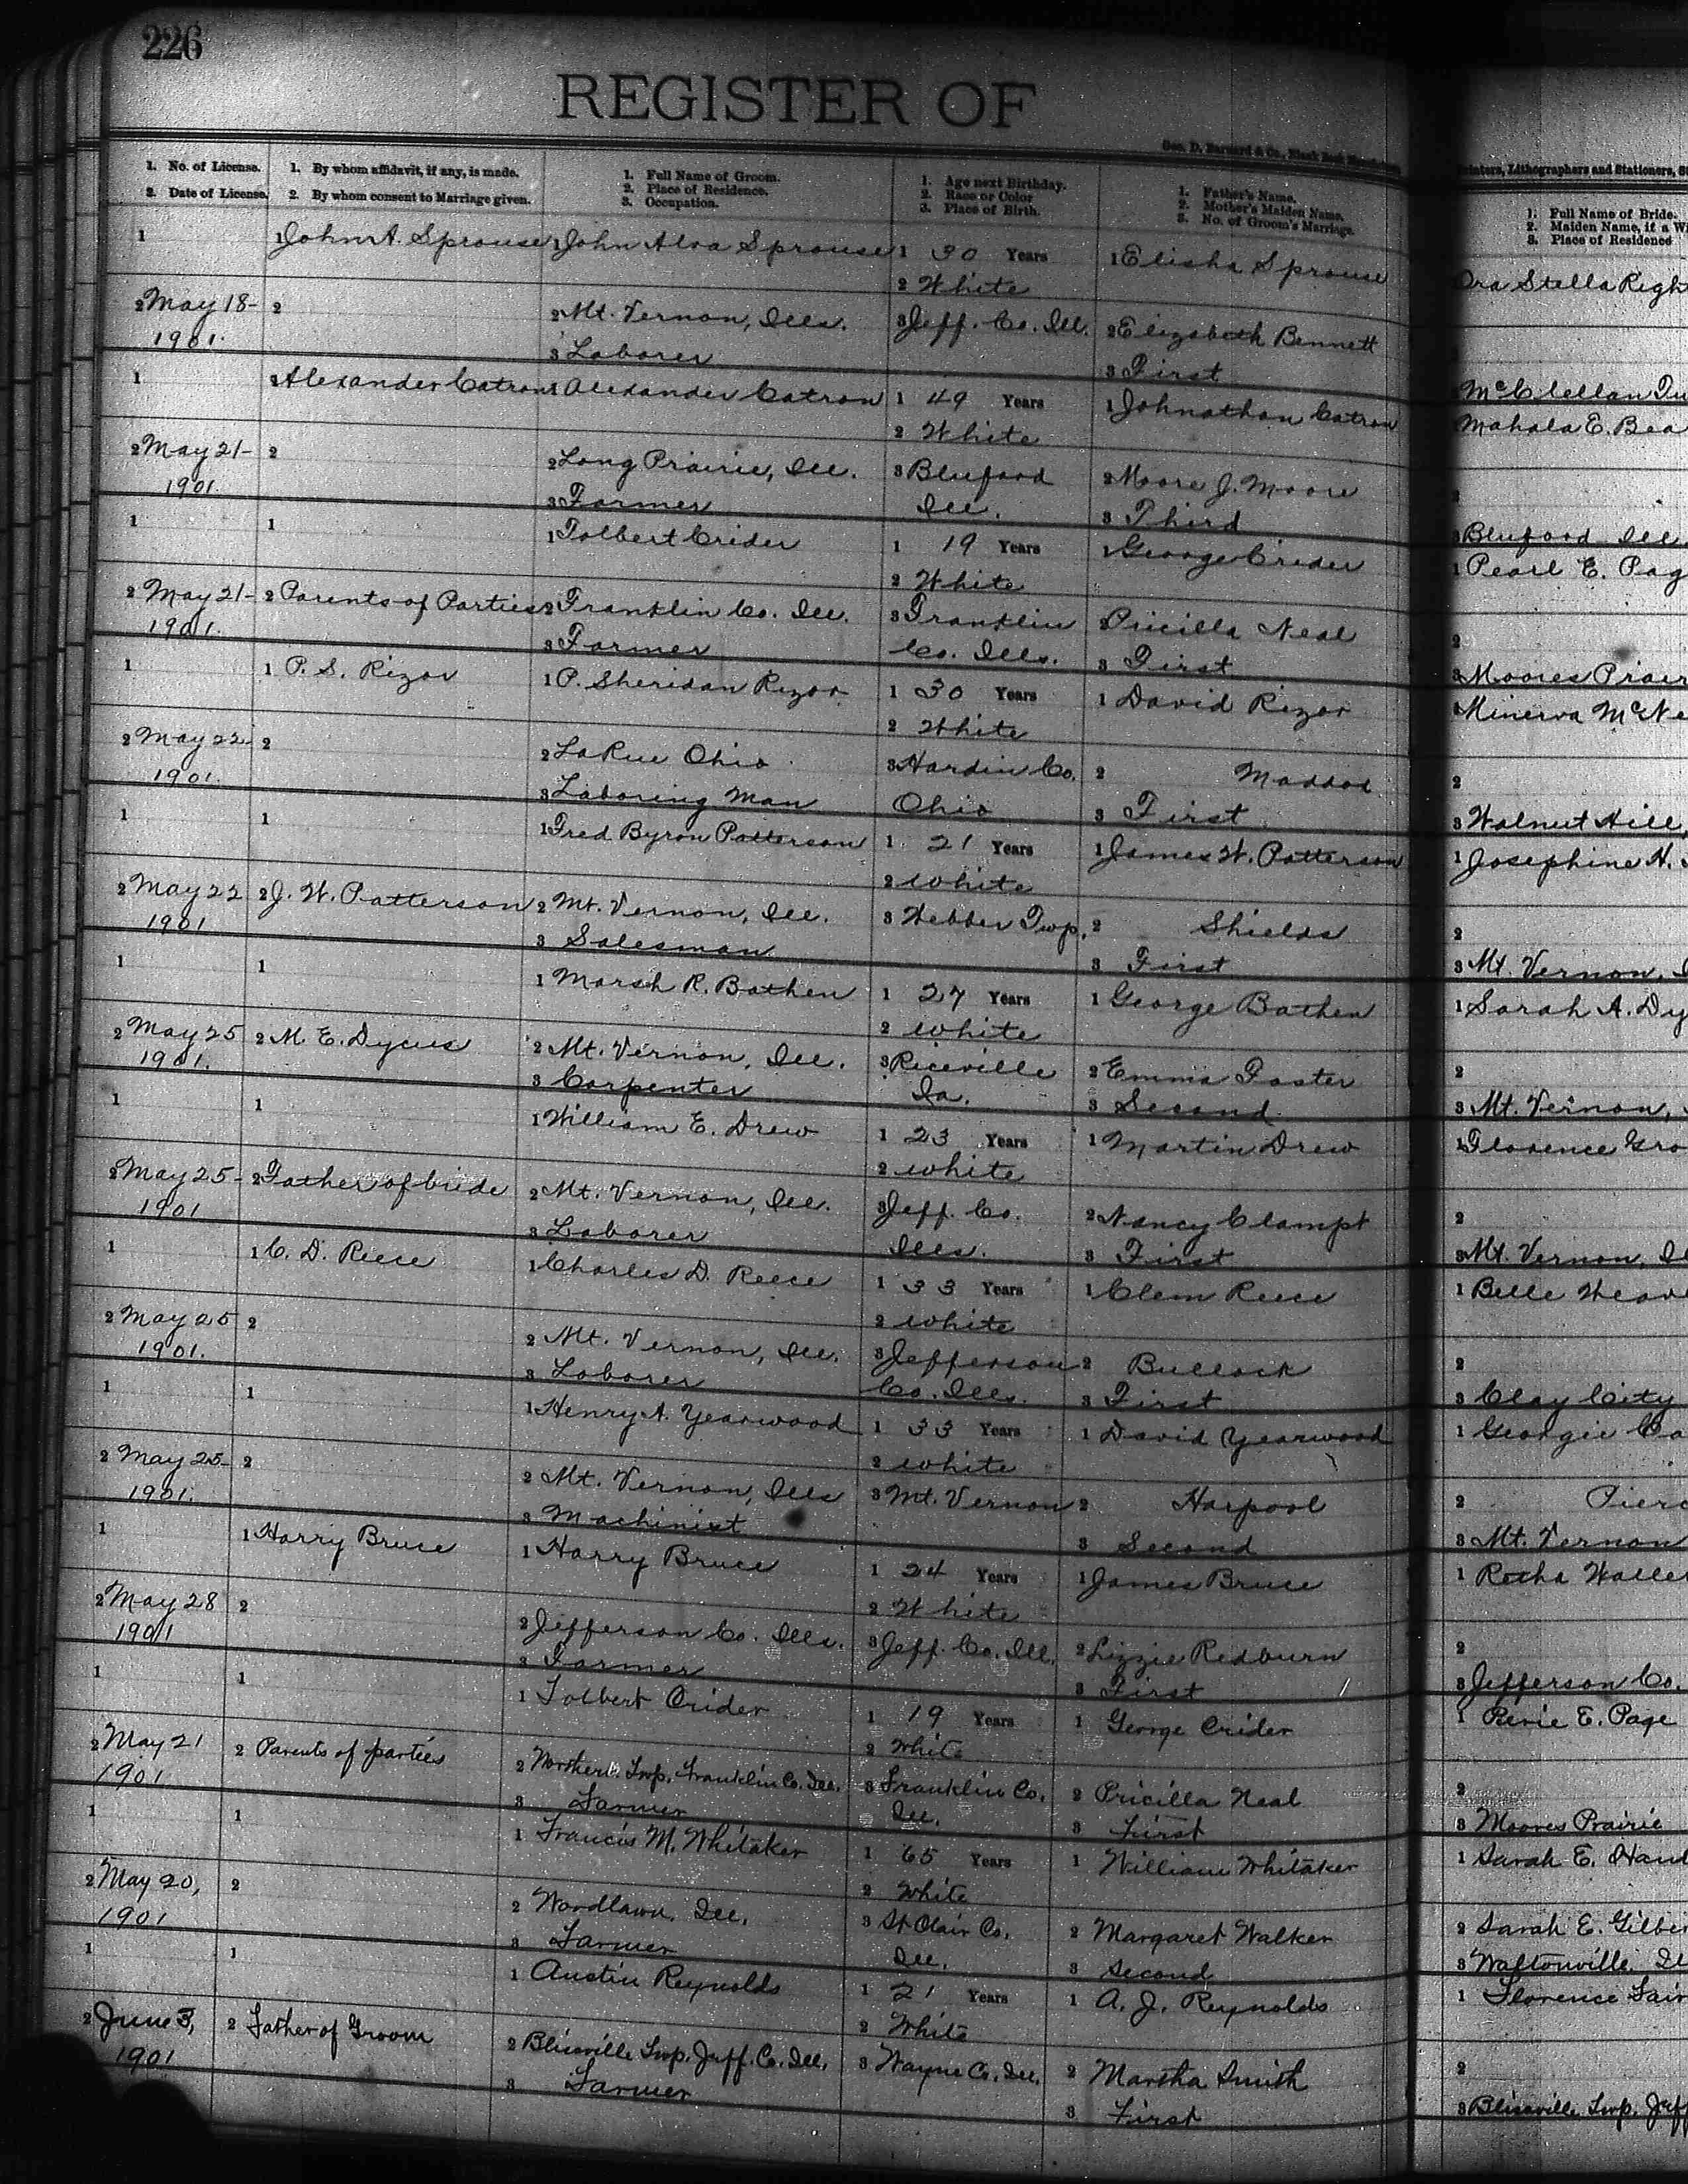 226
REGISTER OF
Geo. D. Barnard & Co., Blank Book
Printers, Lithographers and Stationers, S
1. No. of License.
2. Date of License.
1. By whom affidavit, if any, is made.
2. By whom consent to Marriage given.
1. Full Name of Groom.
2. Place of Residence.
3. Occupation.
1. Age next Birthday.
2. Race or Color
3. Place of Birth.
1. Father's Name.
2. Mother's Maiden Name.
3. No. of Groom's Marriage.
1. Full Name of Bride.
2. Maiden Name, if a Wi
3. Place of Residence
1
2 May 18-
1901.
1 John A. Sprouse
2
1 John Alva Sprouse
2 Mt. Vernon, Ills.
3 Laborer
1 30 Years
2 White
3 Jeff. Co. Ill.
1 Elisha Sprouse
2 Elizabeth Bennett
3 First
Ora Stella Righ
McClellan Tw
1
2 May 21-
1901.
Alexander Catron
2
1 Alexander Catron
2 Long Prairie, Ill.
3 Farmer
1 49 Years
2 White
3 Bluford
Ill.
1 Johnathan Catron
2 Moore J. Moore
3 Third
Mahala E. Bea
2
3 Bluford Ill.
1
2 May 21-
1901.
1
2 Parents of Parties
1 Tolbert Crider
2 Franklin Co. Ill.
3 Farmer
1 19 Years
2 White
3 Franklin
Co. Ills.
1 George Crider
2 Pricilla Neal
3 First
1 Pearl E. Pag
2
3 Moores Prair
1
2 May 22-
1901.
1 P. S. Rizor
2
1 P. Sheridan Rizor
2 LaRue Ohio
3 Laboring Man
1 30 Years
2 White
3 Hardin Co.
Ohio
1 David Rizor
2 Maddox
3 First
1 Minerva McNe
2
3 Walnut Hill,
1
2 May 22
1901
1
2 J. W. Patterson
1 Fred Byron Patterson
2 Mt. Vernon, Ill.
3 Salesman
1 21 Years
2 White
3 Webber Twp.
1 James W. Patterson
2 Shields
3 First
1 Josephine H.
2
3 Mt. Vernon,
1
2 May 25
1901.
1
2 M. E. Dycus
1 Marsh R. Bathen
2 Mt. Vernon, Ill.
3 Carpenter
1 27 Years
2 White
3 Riceville
Ia.
1 George Bathen
2 Emma Foster
3 Second
1 Sarah A. Dy
2
3 Mt. Vernon,
1
2 May 25-
1901
1
2 Father of bride
1 William E. Drew
2 Mt. Vernon, Ill.
3 Laborer
1 23 Years
2 White
3 Jeff. Co.
Ills.
1 Martin Drew
2 Nancy Clampt
3 First
1 Florence Gro
2
3 Mt. Vernon, Il
1
2 May 25
1901.
1 C. D. Reece
2
1 Charles D. Reece
2 Mt. Vernon, Ill.
3 Laborer
1 33 Years
2 White
3 Jefferson
Co. Ills.
1 Clem Reece
2 Bullock
3 First
1 Belle Heav
2
3 Clay City
1
2 May 25-
1901.
1
2
1 Henry A. Yearwood
2 Mt. Vernon, Ills
3 Machinist
1 33 Years
2 White
3 Mt. Vernon
1 David Yearwood
2 Harpool
3 Second
1 Georgie Ca
2 Pierc
3 Mt. Vernon
1
2 May 28
1901
1 Harry Bruce
2
1 Harry Bruce
2 Jefferson Co. Ills.
3 Farmer
1 24 Years
2 White
3 Jeff. Co. Ill.
1 James Bruce
2 Lizzie Redburn
3 First
1 Retha Waller
2
3 Jefferson Co.
1
2 May 21
1901
1
2 Parents of parties
1 Tolbert Crider
2 Northern Twp. Franklin Co. Ill.
3 Farmer
1 19 Years
2 White
3 Franklin Co.
Ill.
1 George Crider
2 Pricilla Neal
3 First
1 Perie E. Page
2
3 Moores Prairie
1
2 May 20,
1901
1
2
1 Francis M. Whitaker
2 Woodlawn, Ill.
3 Farmer
1 65 Years
2 White
3 St Clair Co.
Ill.
1 William Whitaker
2 Margaret Walker
3 Second
1 Sarah E. Haw
2 Sarah E. Gilber
3 Waltonville, Il
1
2 June 3,
1901
1
2 Father of Groom
1 Austin Reynolds
2 Blissville Twp. Jeff. Co. Ill.
3 Farmer
1 21 Years
2 White
3 Wayne Co. Ill.
1 A. J. Reynolds
2 Martha Smith
3 First
1 Florence Fair
2
3 Blissville Twp. Jeff